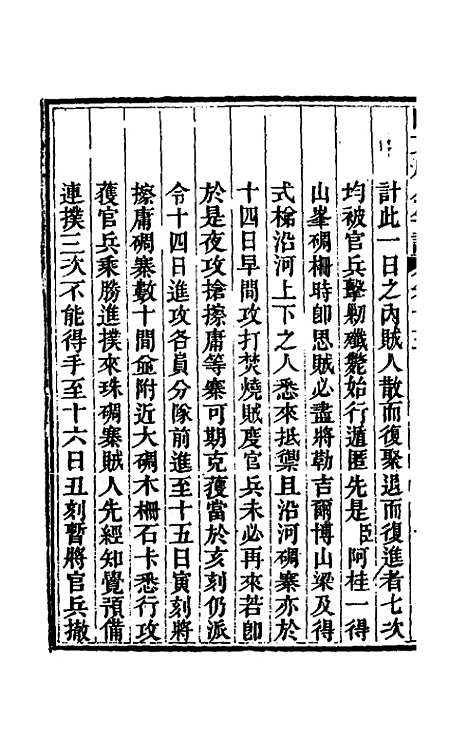 計此一日之內賊人散而復聚退而復進者七次
均被官兵擊勦殲斃始行遁匿先是臣阿桂一得
山峯碉柵時卽思賊必盡將勒吉爾博山梁及得
式梯沿河上下之人悉來抵禦且沿河碉寨亦於
十四日早間攻打焚燒賊度官兵未必再來若卽
於是夜攻搶擦庸等寨可期克獲當於亥刻仍派
令十四日進攻各員分隊前進至十五日寅刻將
擦庸碉寨數十間並附近大碉木柵石卡悉行攻
獲官兵乘勝進撲來珠碉寨賊人先經知覺預備
連撲三次不能得手至十六日丑刻暫將官兵撤